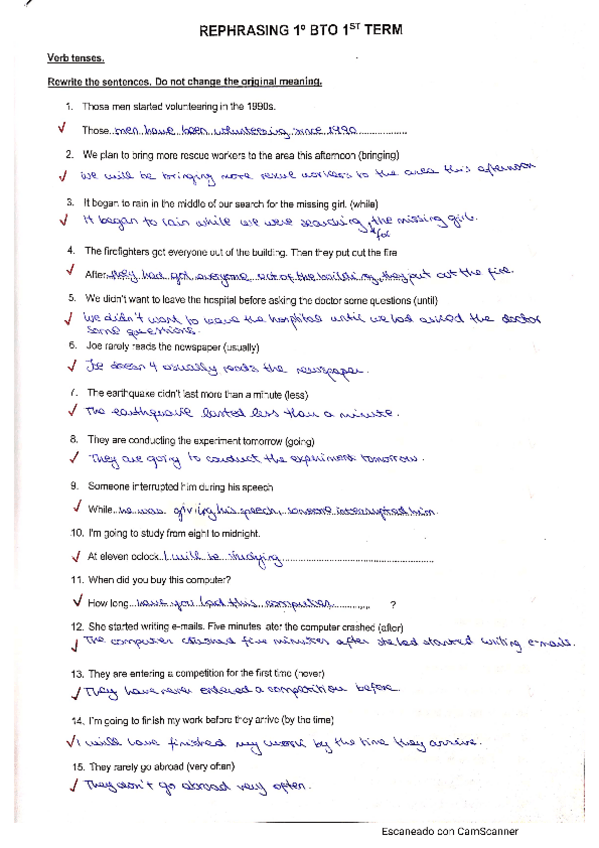 REPHRASING 1º BTO 1ST TERM
Verb tenses.
Rewrite the sentences. Do not change the original meaning.
1. Those men started volunteering in the 1990s.
✓ Those men have been volunteering since 1990
2. We plan to bring more rescue workers to the area this afternoon (bringing)
✓ We will be bringing more rescue workers to the area this afternoon
3. It began to rain in the middle of our search for the missing girl. (while)
✓ It began to rain while we were searching the missing girl.
for
4. The firefighters got everyone out of the building. Then they put out the fire
✓ After they had got everyone out of the building, they put out the fire.
5. We didn't want to leave the hospital before asking the doctor some questions (until)
✓ We didn't want to leave the hospital until we had asked the doctor
some questions.
6. Joe rarely reads the newspaper (usually)
✓ Joe doesn't usually reads the newspaper.
7. The earthquake didn't last more than a minute (less)
✓ The earthquake lasted less than a minute.
8. They are conducting the experiment tomorrow (going)
✓ They are going to conduct the experiment tomorrow.
9. Someone interrupted him during his speech
✓ While he was giving his speech, someone interrupted him.
10. I'm going to study from eight to midnight.
✓ At eleven oclock I will be studying
11. When did you buy this computer?
✓ How long have you had this computer ?
12. She started writing e-mails. Five minutes later the computer crashed (after)
✓ The computer crashed five minutes after she had started writing e-mails.
13. They are entering a competition for the first time (never)
✓ They have never entered a competition before.
14. I'm going to finish my work before they arrive (by the time)
✓ I will have finished my work by the time they arrive.
15. They rarely go abroad (very often)
✓ They don't go abroad very often.
Escaneado con CamScanner